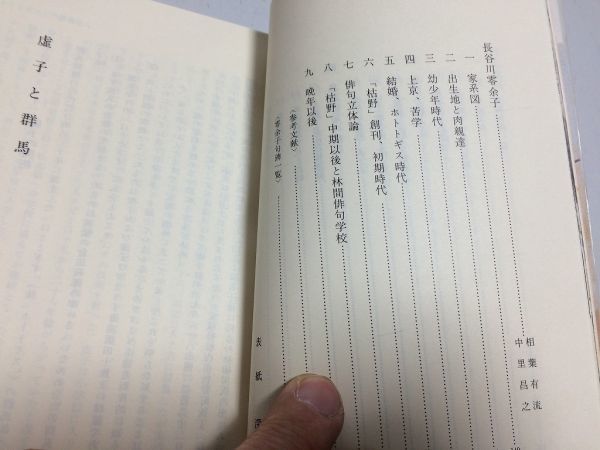 長谷川零余子
一 家系図
二 出生地と肉親達
三 幼少年時代
四 上京、苦学
五 結婚、ホトトギス時代
六 「枯野」創刊、初期時代
七 俳句立体論
八 「枯野」中期以後と林間俳句学校
九 晩年以後
〈参考文献〉
〈零余子句碑一覧〉
相葉有流
中里昌之
表紙
虚子と群馬